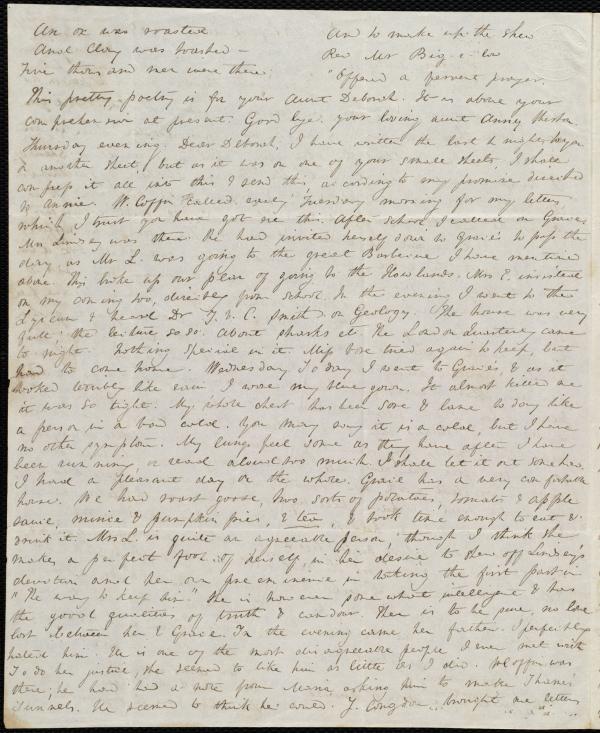 An ox was roasted
And Clay was toasted —
Five thousand men were there.
And to make up the shew
Rev Mr Big e low
"Offered a fervent prayer.
This pretty poetry is for your Aunt Deborah. It is above your
comprehension at present. Good bye. your loving aunt Anne Weston.
Thursday evening. Dear Deborah, I have written the last
in another sheet, but as it was on one of your small sheets, I shall
compress it all into this & send this, according to my promise directed
to Annie. W. Coffin called early Tuesday morning for my letters,
which I trust you have got ere this. After school I called on Grace.
Mrs Lindsey was there. She had invited herself down to Grace's to pass the
day as Mr L. was going to the great Barbecue I have mentioned
above. This broke up our plan of going to the Howlands. Mrs E. insisted
on my coming too, directly from school. In the evening I went to the
Lyceum & heard Dr J. V. C. Smith on Geology. The house was very
full, the lecture so so. About sharks etc. The London Quarterly came
to night. Nothing special in it. Miss tried again to keep, but
had to come home. Wednesday. To day I went to Grace's, & as it
looked terribly like rain I wore my blue gown. It almost killed me
it was so tight. My whole chest has been sore & lame to day like
a person in a bad cold. You may say it is a cold, but I have
no other symptom. My lungs feel some as they have after I have
been running, or read aloud too much. I shall let it out somehow.
I had a pleasant day on the whole. Grace has a very comfortable
house. We had roast goose, two sorts of potatoes, tomato & apple
sauce, mince & pumpkin pies, & tea, & took time enough to eat &
drink it. Mrs L. is quite an agreeable person, though I think she
makes a perfect fool of herself, in her desire to shew off Lindsey's
devotion and her own pre eminence in taking the first part in
"The way to keep him." She is however somewhat intelligent & has
the good qualities of truth & candour. There is to be sure, no love
lost between her & Grace. In the evening came her father. I perfectly
hated him. He is one of the most disagreeable people I ever met with
To do her justice, she seemed to like him as little as I did. W Coffin was
there; he had had a note from Maria asking him to make
tunnels. He seemed to think he could. J. Congdon brought me letters